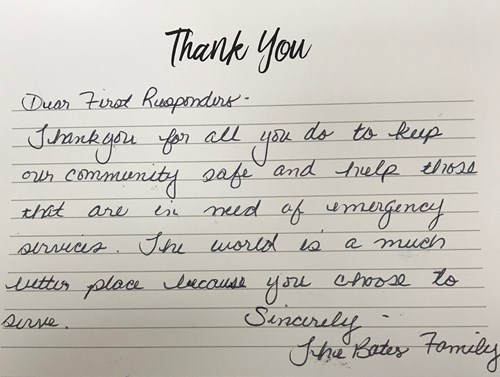 Thank You
Dear First Responders-
Thank you for all you do to keep
our community safe and help those
that are in need of emergency
services. The world is a much
better place because you choose to
serve. Sincerely -
The Bates Family